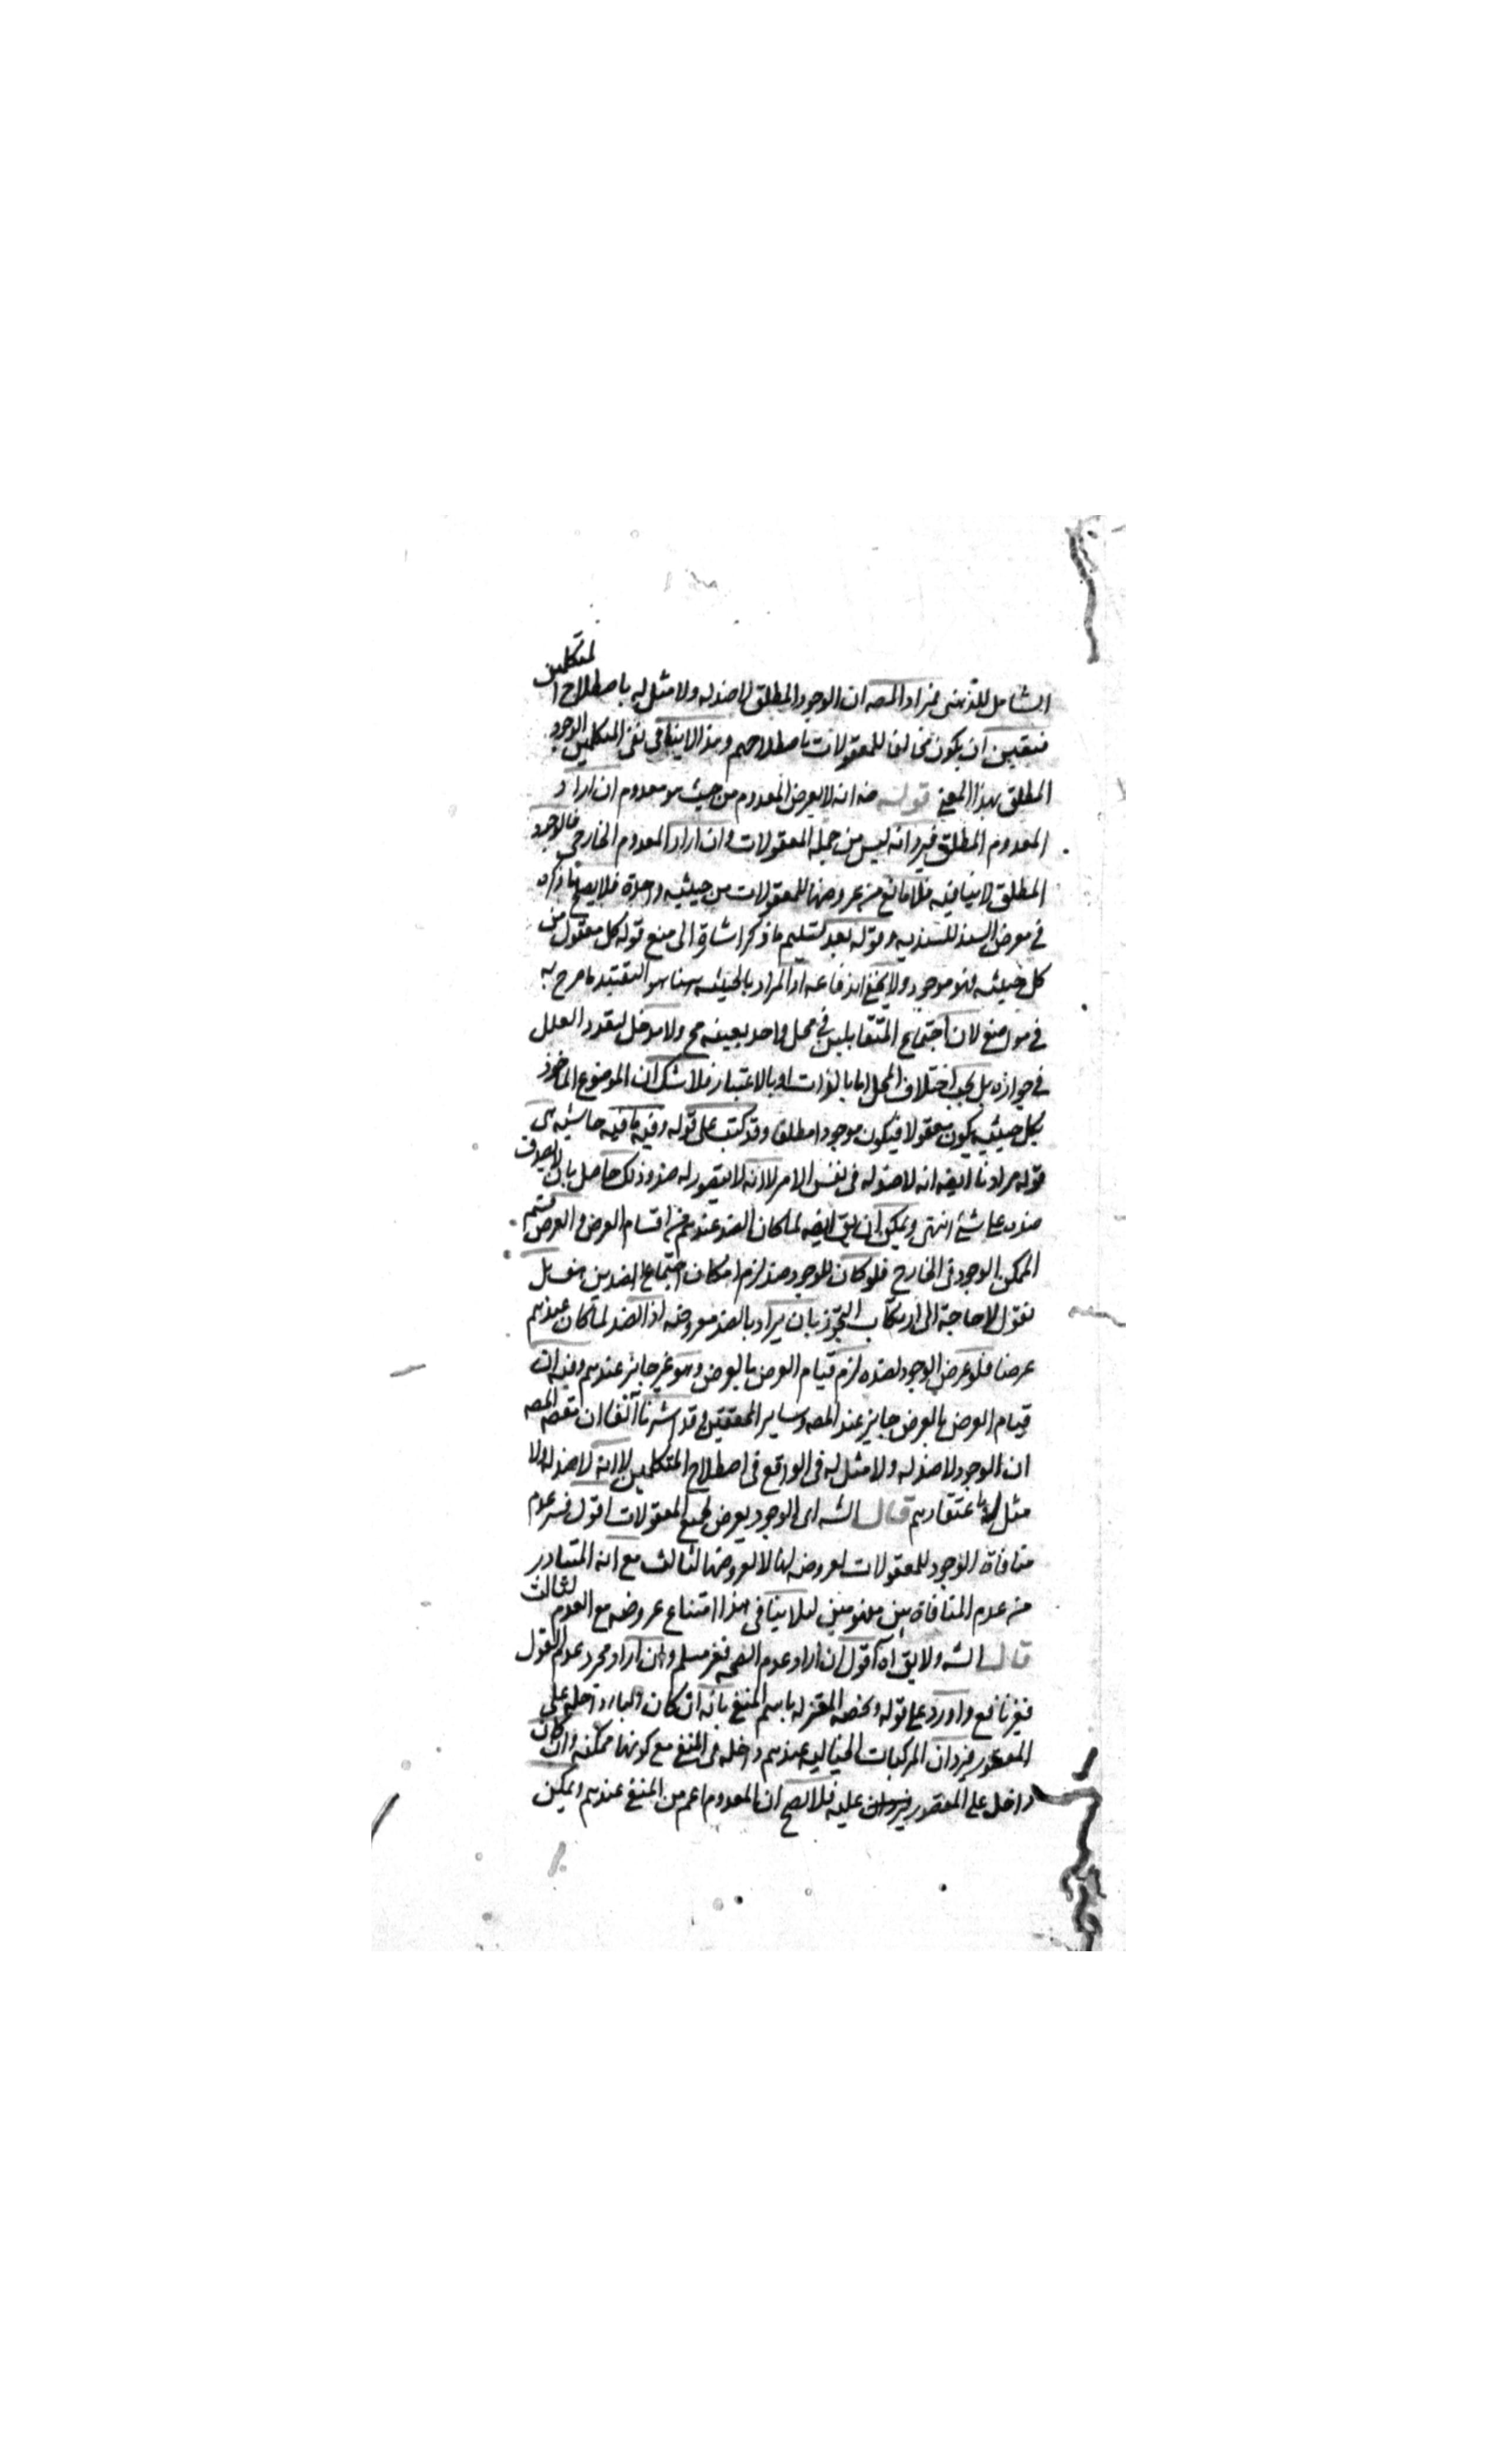 الشامل للذهنى فمراد المصه ان الوجود المطلق لا ضد له ولا مثل له باصطلاح المتكلمين
فتعين ان يكون مخالفا للمعقولات باصطلاحهم وهذا لا ينافى نفى المتكلمين الوجود
المطلق بهذا المعنى قوله منه انه لا يعرض المعدوم من حيث هو معدوم ان اراد
المعدوم المطلق فيرد انه ليس من جملة المعقولات وان اراد المعدوم الخارجى فالوجود
المطلق لا ينافيه فلا مانع من عروضها للمعقولات من حيثية واحدة فلا يصلح ما ذكره
فى معرض السند للسندية وقوله بعد تسليم ما ذكر اشارة الى منع قوله كل معقول من
كل حيثيه فهو موجود ولا يخفى اندفاعه اذ المراد بالحيثيه هنا هو التقييد ما صرح به
فى لان اجتماع المتقابلين فى محل واحد بعينه مح ولا مدخل لتعدد العلل
فى جوازه بل يجب اختلاف المحل اما بالذات او بالاعتبار فلا شك ان الموضوع الماخوذ
بكل حيثيه يكون معقولا فيكون موجودا مطلقا وقد كتب على قوله وفيه ما فيه حاشيه هى
قوله مرادنا ايضه انه لا ضد له فى نفس الامر لا انه لا يتصور له ضد وذلك حاصل بان لا يصدق
ضده على شئ انتهى ويمكن ان يق ايضه لما كان الضد عندهم من اقسام العرض والعرض قسم
الممكن الوجود فى الخارج فلو كان للوجود ضد لزم امكان اجتماع الضدين بل
نقول لا حاجة الى ارتكاب التجوز بان يراد بالضد معروضه اذ الضد لما كان عندهم
عرضا فلو عرض الوجود لضده لزم قيام العرض بالعرض وهو غير جائز عندهم وفيه ان
قيام العرض بالعرض جايز عند المصه وساير المحققين وقد اشرنا آنفا ان مقصد المصه
ان الوجود لا ضد له ولا مثل له فى الواقع فى اصطلاح المتكلمين لا انه لا ضد له ولا
مثل له باعتقادهم قال الشه اى الوجود يعرض لجميع المعقولات اقول فسر عدم
منافاة الوجود للمعقولات بعروضه لها لا لعروضها لثالث مع انه المتبادر
من عدم المنافاة بين مفهومين لئلا ينافى هذا امتناع عروضه مع العدم لثالث
قال الشه ولا يق اه اقول ان اراد عدم الصحه فغير مسلم وان اراد مجرد عدم القول
فغير نافع واورد على قوله ويخصه المعتزله باسم المنفى بانه ان كان الباء داخله على
المقصور فيرد ان المركبات الخياليه عندهم داخله فى المنفى مع كونها ممكنه وان كان
داخل على المقصور عليه فلا يصح ان المعدوم اعم من المنفى عندهم ويمكن